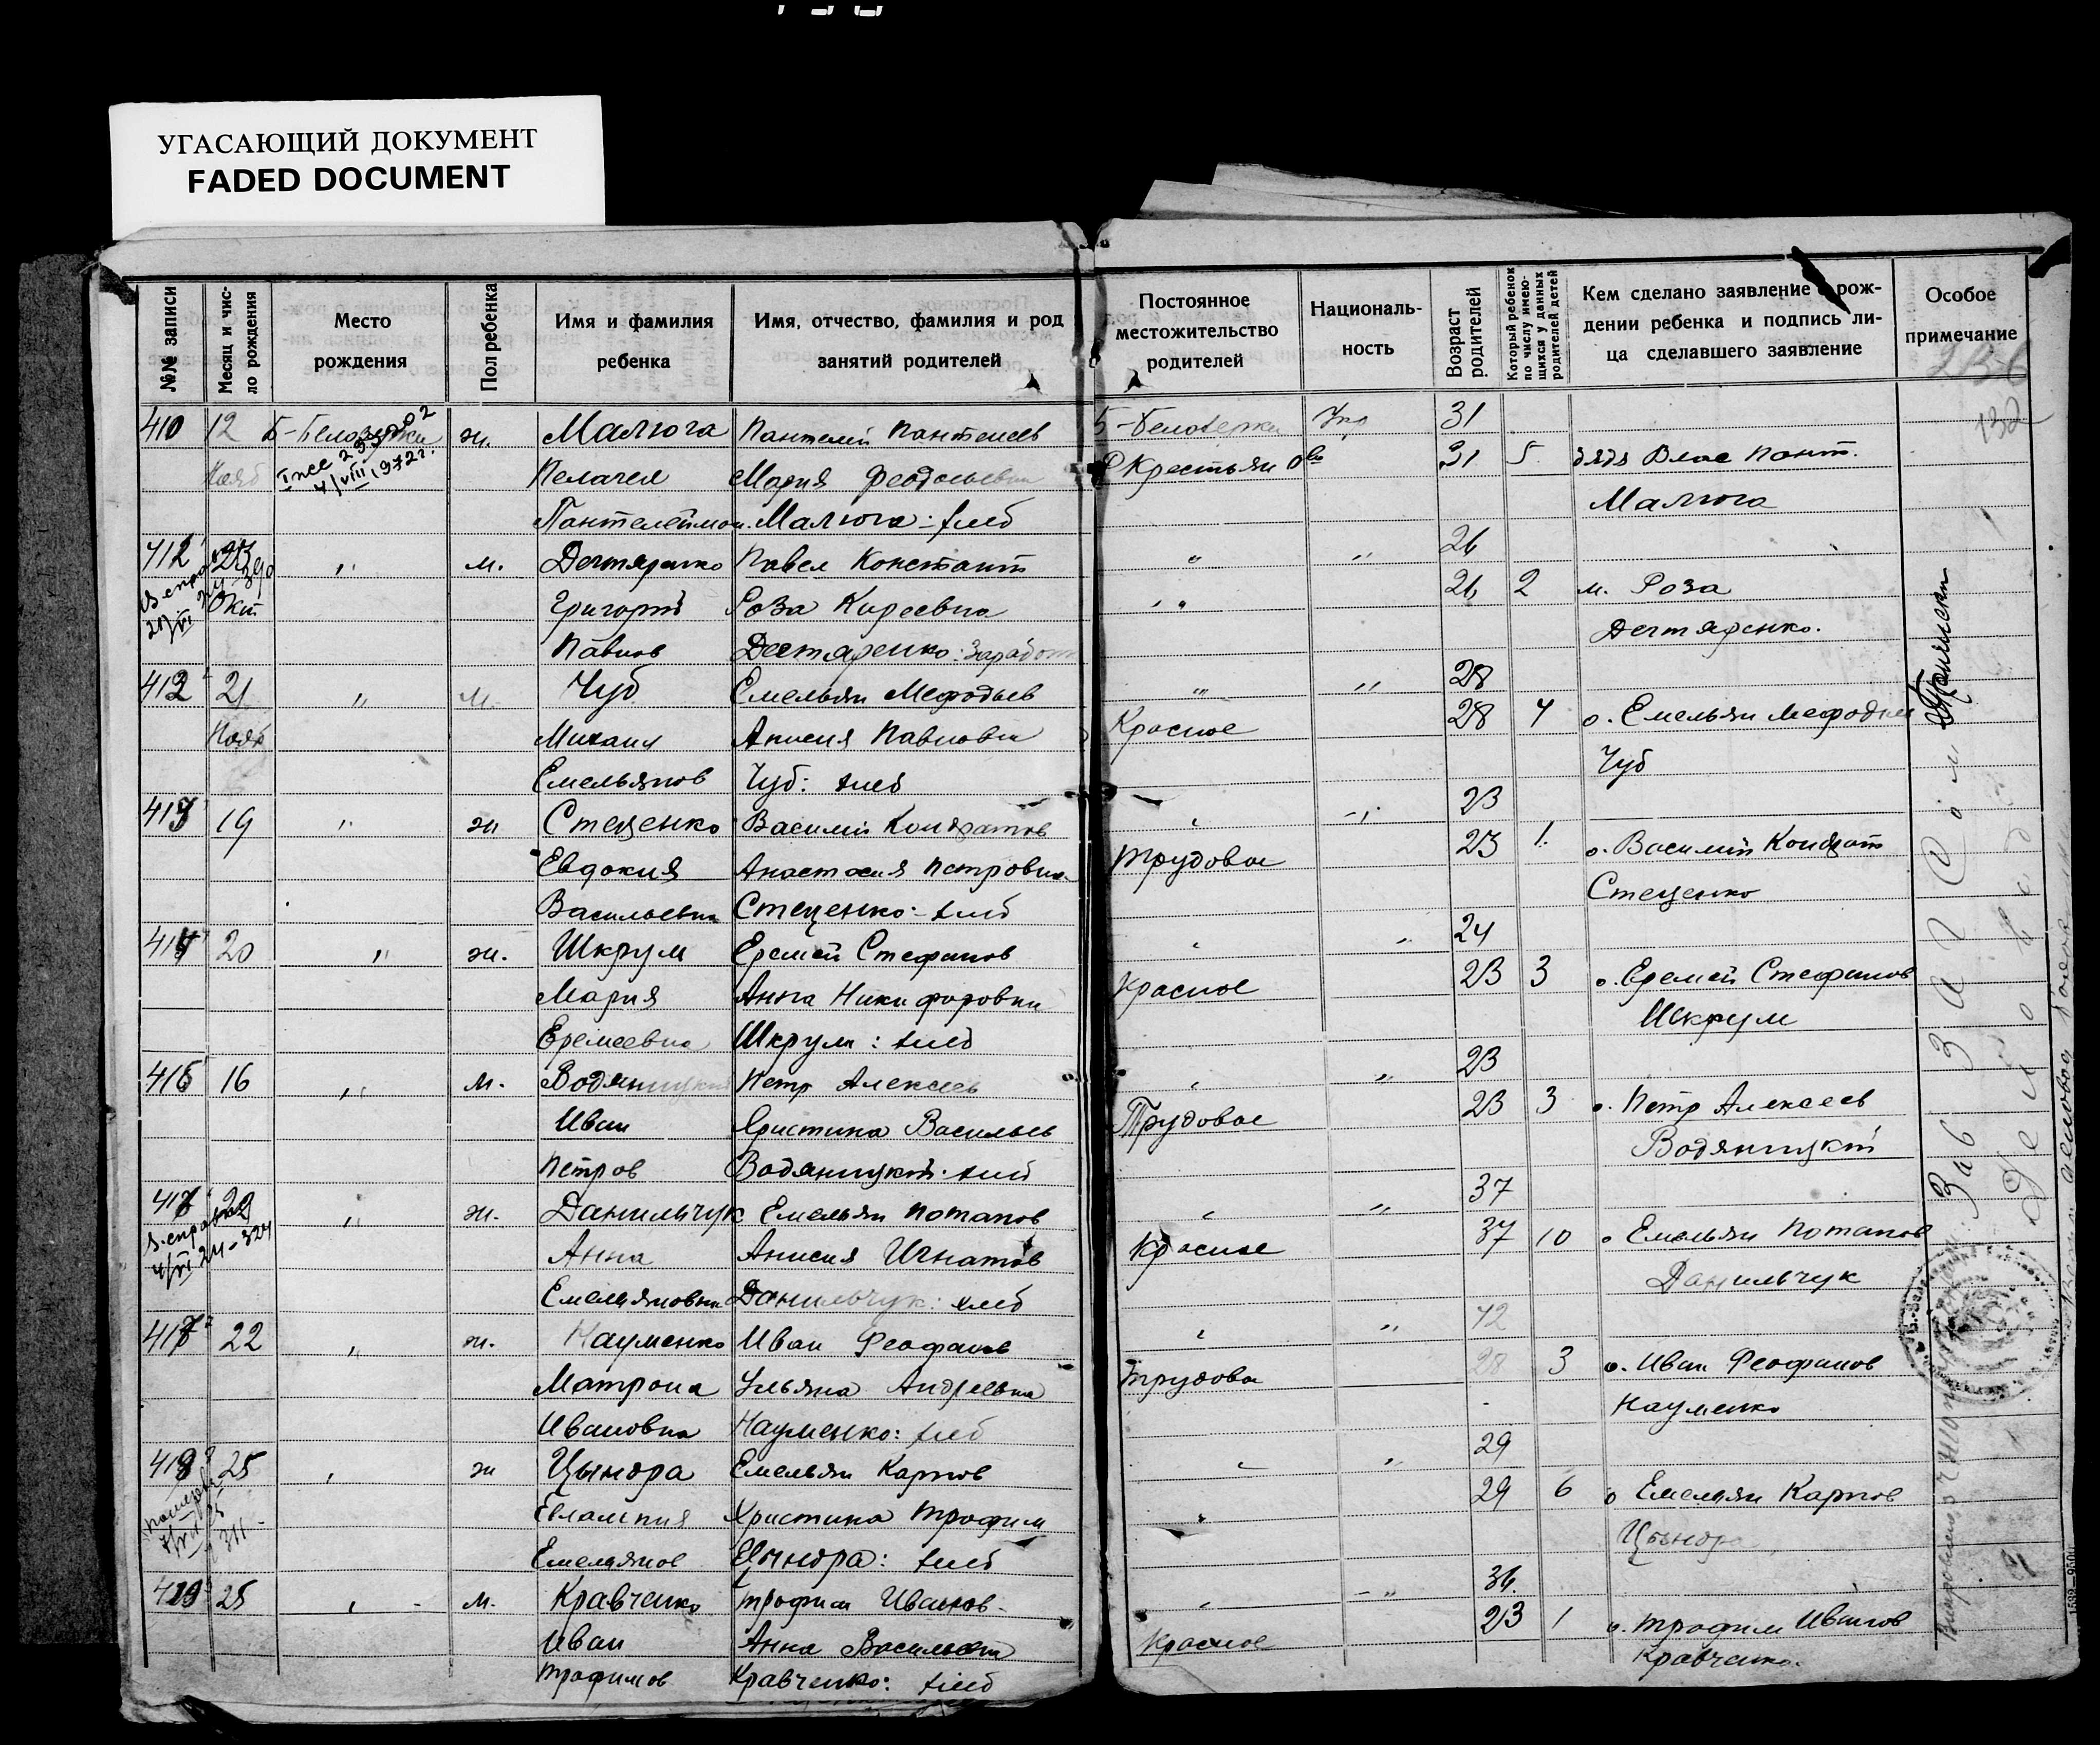 УГАСАЮЩИЙ ДОКУМЕНТ
FADED DOCUMENT
№№ записи
Месяц и чис-
ло рождения
Место
рождения
Пол ребенка
Имя и фамилия
ребенка
Имя, отчество, фамилия и род
занятий родителей
Постоянное
местожительство
родителей
Националь-
ность
Возраст
родителей
Который ребенок
по числу имею-
щихся у данных
родителей детей
Кем сделано заявление о рож-
дении ребенка и подпись ли-
ца сделавшего заявление
Особое
примечание
236
132
410 12 Б-Белозерки ж. Малюга Пантелей Пантелеев Б-Белозерки Укр 31
Нояб Пелагея Мария Феодосьевна 31 5 дядя Влас Пант.
4/VIII 1972г.
Пантелеймон. Малюга: хлеб Малюга
412 23 " м. Дегтяренко Павел Констант " " 26
Окт Григорий Роза Киреевна " 26 2 м. Роза
Павлов Дегтяренко: Дегтяренко.
412 21 " м. Чуб Емельян Мефодьев " " 28
Нояб Михаил Анисия Павловна Красное 28 4 о. Емельян Мефодьев
Емельянов Чуб: хлеб Чуб
413 19 " ж Стеценко Василий Кондратов " " 23
Евдокия Анастасия Петровна Трудовое 23 1. о. Василий Кондрат
Васильевна Стеценко: хлеб Стеценко
414 20 " ж. Шкрум Еремей Стефанов " " 24
Мария Анна Никифоровна Красное 23 3 о. Еремей Стефанов
Еремеевна Шкрум: хлеб Шкрум
415 16 " м. Водяницкий Петр Алексеев " " 23
Иван Христина Васильев Трудовое 23 3 о. Петр Алексеев
Петров Водяницкий: хлеб Водяницкий
416 22 " ж. Данильчук Емельян Потапов " " 37
Анна Анисия Игнатов Красное 37 10 о Емельян Потапов
Емельяновна Данильчук: хлеб Данильчук
417 22 " ж. Науменко Иван Феофанов " " 42
Матрона Ульяна Андреевна Трудово 28 3 о. Иван Феофанов
Ивановна Науменко: хлеб Науменко
418 25 " ж Цындра Емельян Карпов " " 29
Евлампия Христина Трофим " 29 6 о Емельян Карпов
Емельянов Цындра: хлеб Цындра
419 25 " м. Кравченко Трофим Иванов " " 31
Иван Анна Васильевна Красное 23 1 о. Трофим Иванов
Трофимов Кравченко: хлеб Кравченко.
Зав ЗАГСом
Деловод